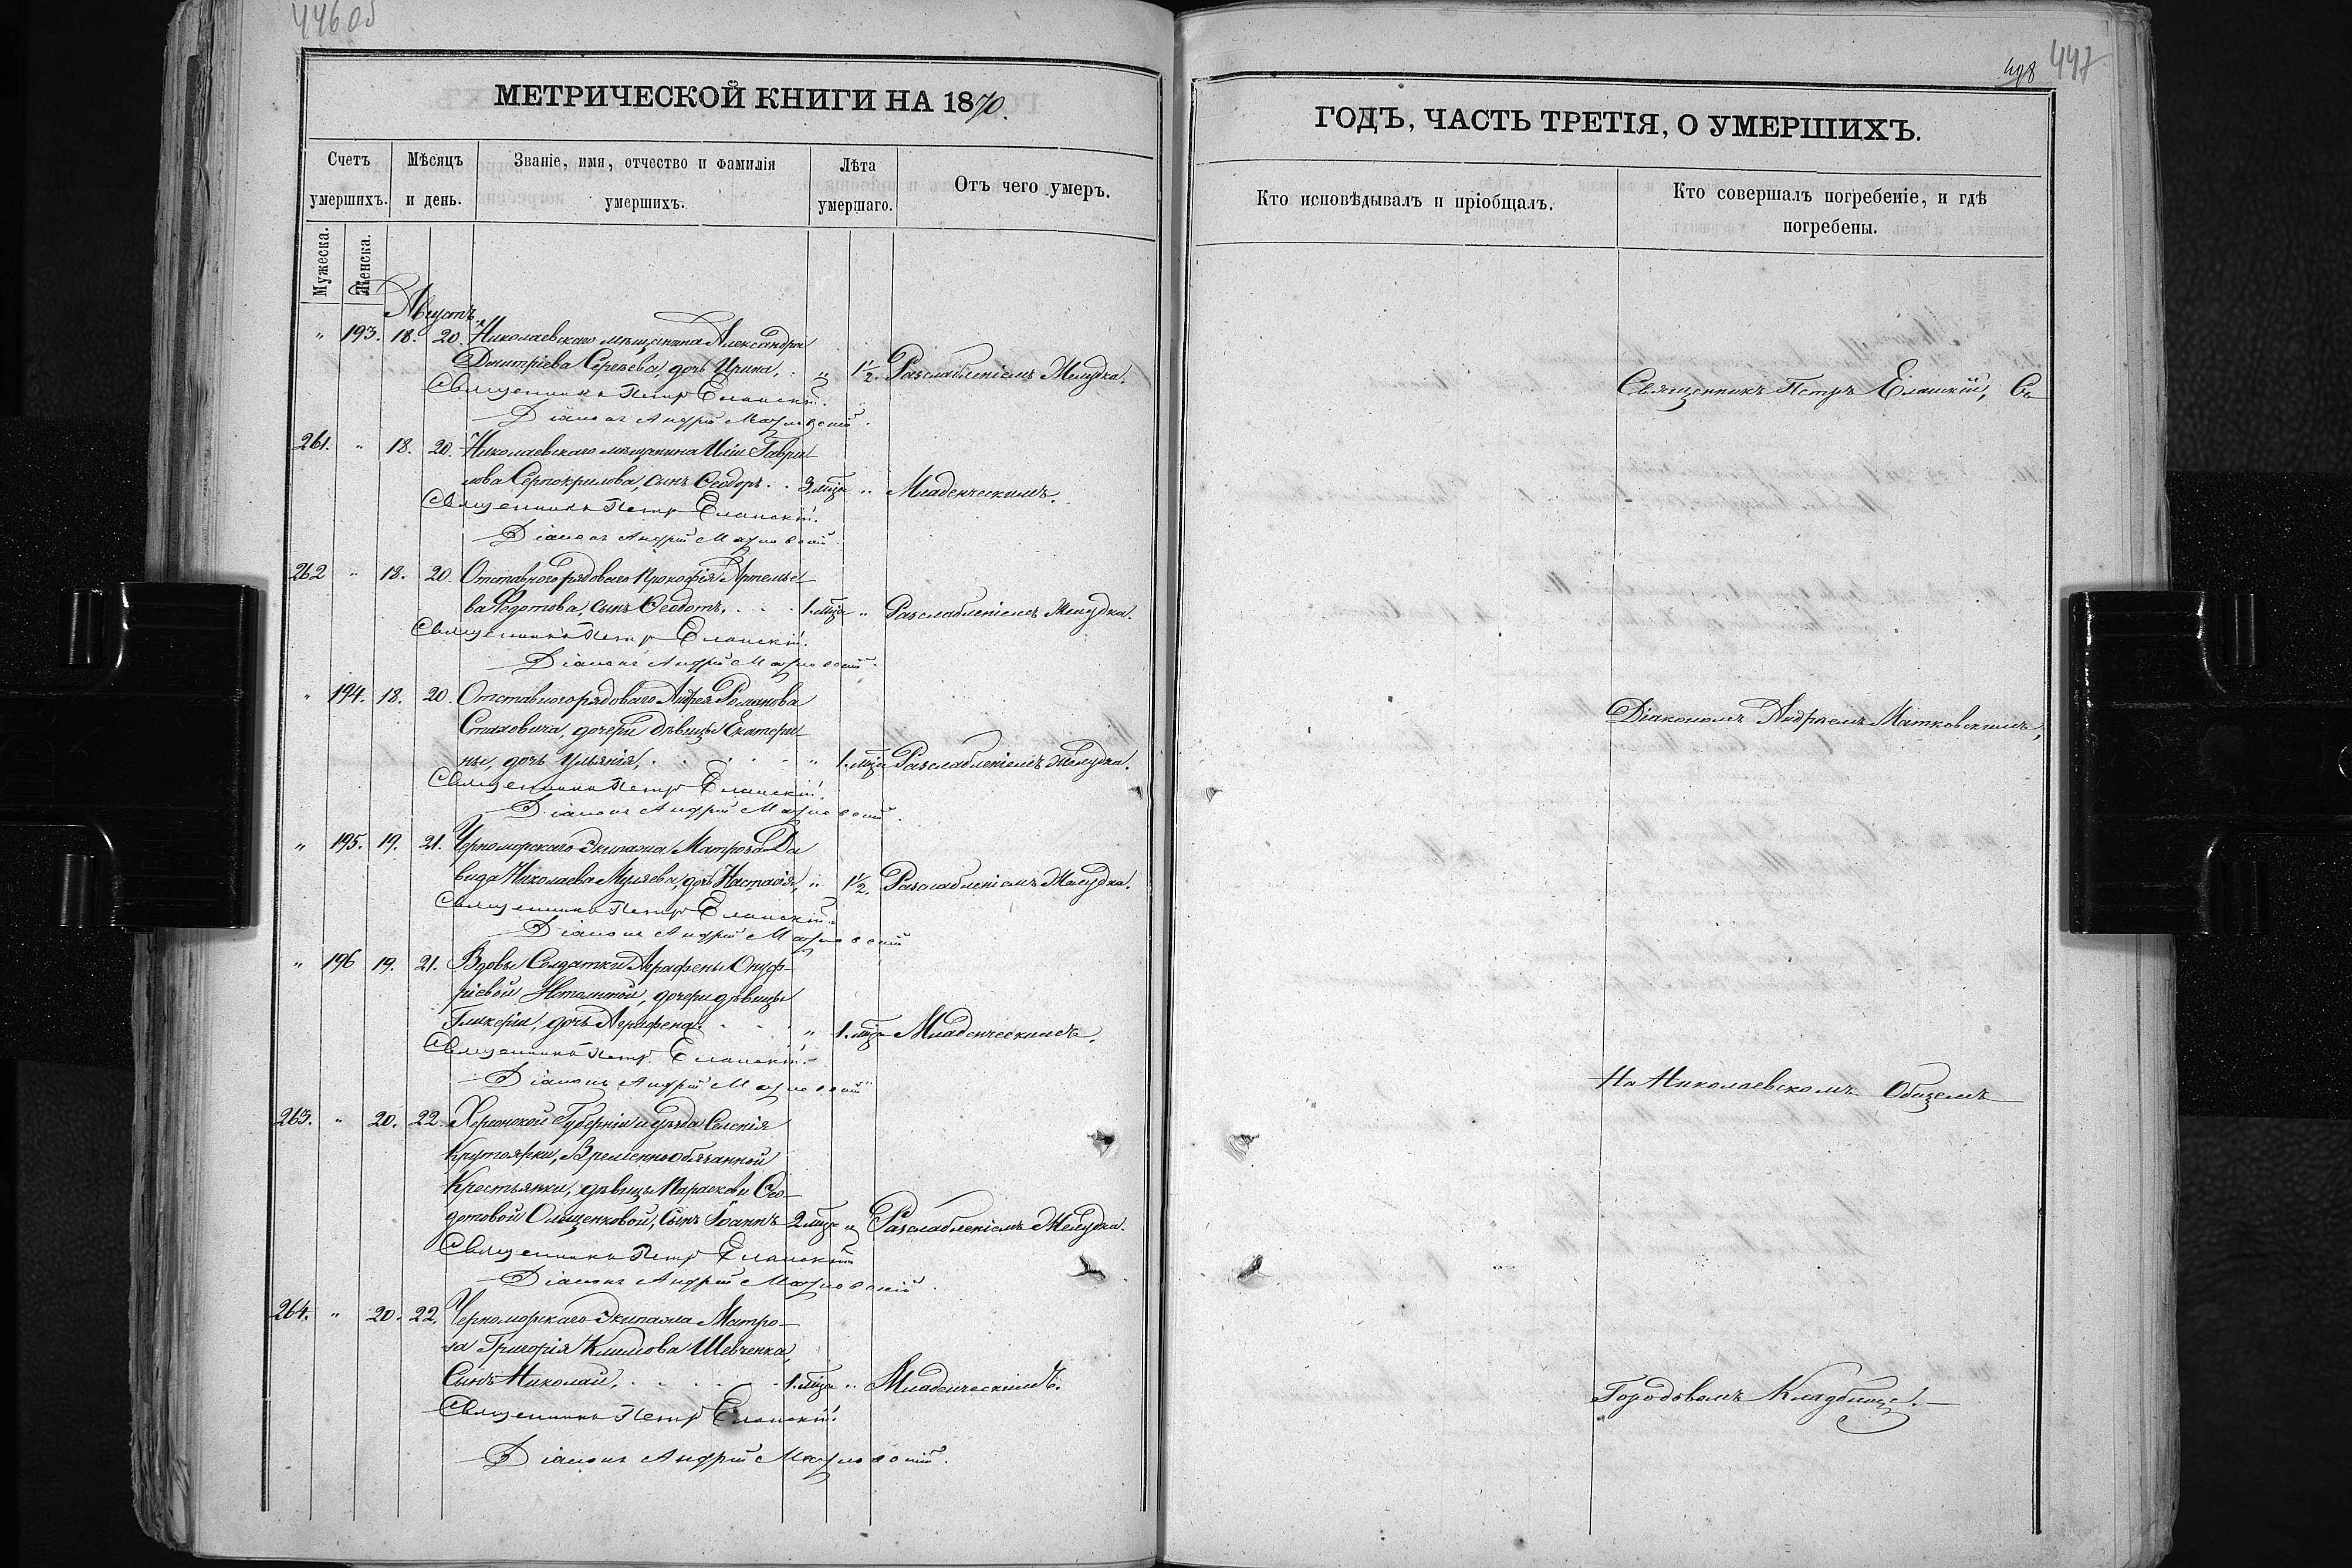 446 об
МЕТРИЧЕСКОЙ КНИГИ НА 1870.
Счетъ умершихъ.
Мѣсяцъ и день.
Званіе, имя, отчество и фамилія умершихъ.
Лѣта умершаго.
Отъ чего умеръ.
Мужеска.
Женска.
Августъ
" 193. 18. 20. Николаевскаго мѣщанина Александра
Дмитріева Сергѣева, дочь Ирина, . " 1½. Разслабленіемъ Желудка.
Священникъ Петръ Еланскій.
Діаконъ Андрей Матковскій.
261. " 18. 20. Николаевскаго мѣщанина Иліи Гаври
лова Серпокрилова, сынъ Ѳеодоръ . . 3 мѣца " Младенческимъ.
Священникъ Петръ Еланскій.
Діаконъ Андрей Матковскій.
262 " 18. 20. Отставного рядового Прокофія Артемье-
ва Федотова, сынъ Ѳеодотъ. . . . 1. мѣца " Разслабленіемъ Желудка.
Священникъ Петръ Еланскій.
Діаконъ Андрей Матковскій.
" 194. 18. 20. Отставного рядоваго Андрея Романова
Стаховича, дочери дѣвицы Екатери
ны, дочь Ульянія, . . . . . " 1. мѣца Разслабленіемъ Желудка.
Священникъ Петръ Еланскій.
Діаконъ Андрей Матковскій.
" 195. 19. 21. Черноморскаго Экипажа Матроза Да
вида Николаева Муляева, дочь Настасія, " 1½. Разслабленіемъ Желудка.
Священникъ Петръ Еланскій.
Діаконъ Андрей Матковскій
" 196 19. 21. Вдовы Солдатки Аграфены Онуф-
ріевой, дочери дѣвицы
Гликеріи, дочь Аграфена . . . " 1. мѣца Младенческимъ.
Священникъ Петръ Еланскій.
Діаконъ Андрей Матковскій
263. " 20. 22. Херсонской Губерніи и уѣзда Селенія
Крутоярки, Временнообязанной
Крестьянки, дѣвицы Параскевы Ѳео-
дотовой Олещенковой, Сынъ Іоаннъ 2 мѣца " Разслабленіемъ Желудка.
Священникъ Петръ Еланскій
Діаконъ Андрей Матковскій.
264. " 20. 22. Черноморскаго Экипажа Матро-
за Григорія Климова Шевченка,
Сынъ Николай, . . . . . 1. мѣца " Младенческимъ.
Священникъ Петръ Еланскій.
Діаконъ Андрей Матковскій.
498 447
ГОДЪ, ЧАСТЬ ТРЕТІЯ, О УМЕРШИХЪ.
Кто исповѣдывалъ и пріобщалъ.
Кто совершалъ погребеніе, и гдѣ
погребены.
Священникъ Петръ Еланскій, Съ
Діакономъ Андреемъ Матковскимъ,
На Николаевскомъ Общемъ
Городовомъ Кладбищѣ. —